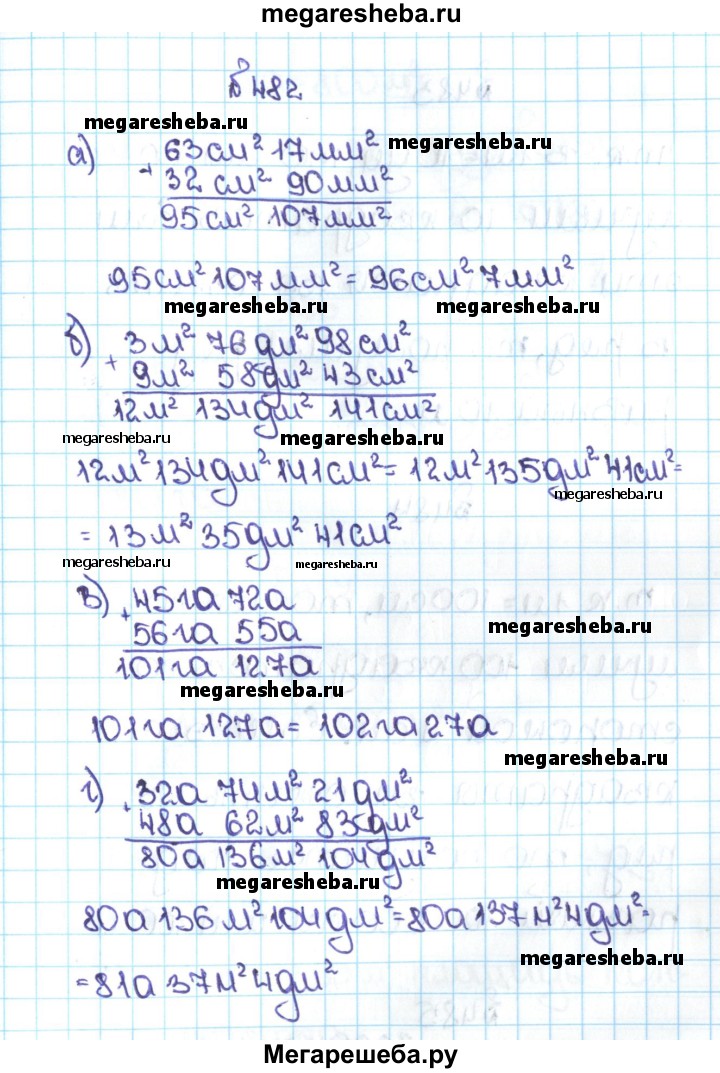 megaresheba.ru
№ 482
megaresheba.ru
а) + 63 см² 17 мм² megaresheba.ru
32 см² 90 мм²
95 см² 107 мм²
95 см² 107 мм² = 96 см² 7 мм²
megaresheba.ru megaresheba.ru
б) + 3 м² 76 дм² 98 см²
9 м² 58 дм² 43 см²
12 м² 134 дм² 141 см²
megaresheba.ru megaresheba.ru
12 м² 134 дм² 141 см² = 12 м² 135 дм² 41 см² =
megaresheba.ru
= 13 м² 35 дм² 41 см²
megaresheba.ru megaresheba.ru
в) + 45 га 72 а
56 га 55 а megaresheba.ru
101 га 127 а
megaresheba.ru
101 га 127 а = 102 га 27 а
megaresheba.ru
г) + 32 а 74 м² 21 дм²
48 а 62 м² 83 дм²
80 а 136 м² 104 дм²
megaresheba.ru
80 а 136 м² 104 дм² = 80 а 137 м² 4 дм² =
megaresheba.ru
= 81 а 37 м² 4 дм²
megaresheba.ru
Мегарешеба.ру